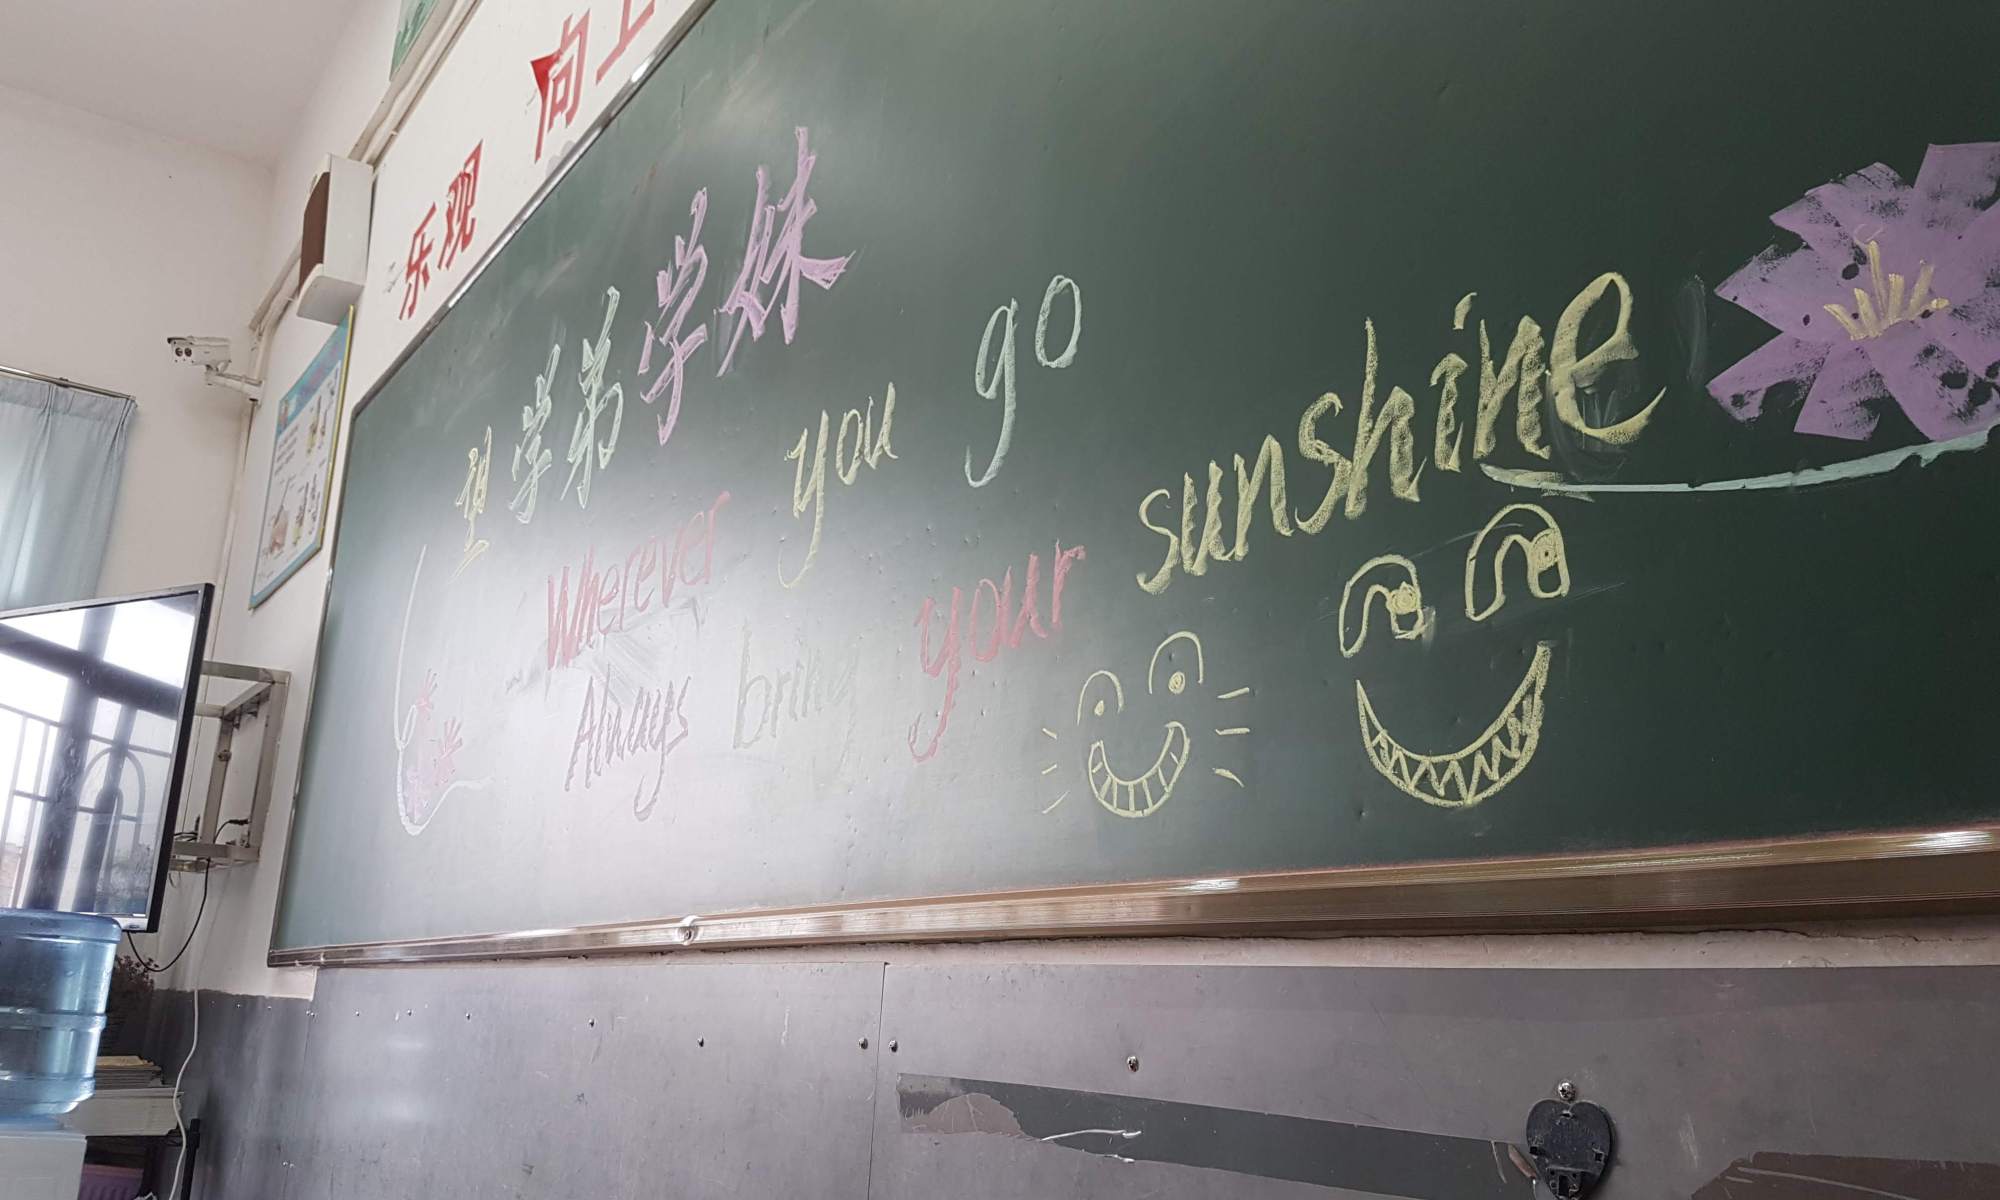 乐观 向上
望学弟学妹
Wherever you go
Always bring your sunshine